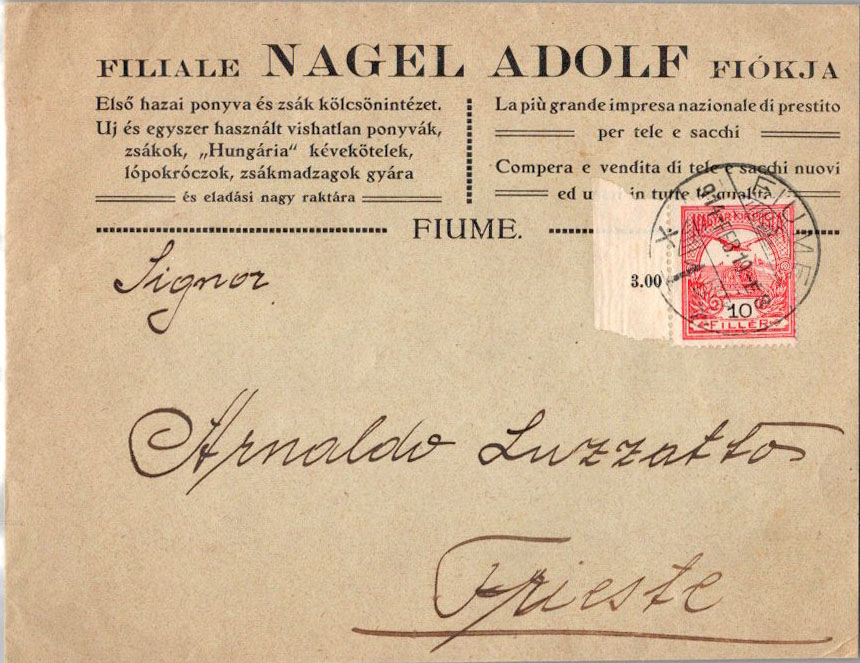 FILIALE NAGEL ADOLF FIÓKJA
Első hazai ponyva és zsák kölcsönintézet.
Uj és egyszer használt vishatlan ponyvák,
zsákok, „Hungária“ kévekötelek,
lópokróczok, zsákmadzagok gyára
és eladási nagy raktára
La più grande impresa nazionale di prestito
per tele e sacchi
Compera e vendita di tele e sacchi nuovi
ed in tutte le qualità
FIUME.
Signor
3.00
MAGYAR KIR. POSTA
10
FILLÉR
FIUME
914 FEB. 19
Arnaldo Luzzatto
Trieste